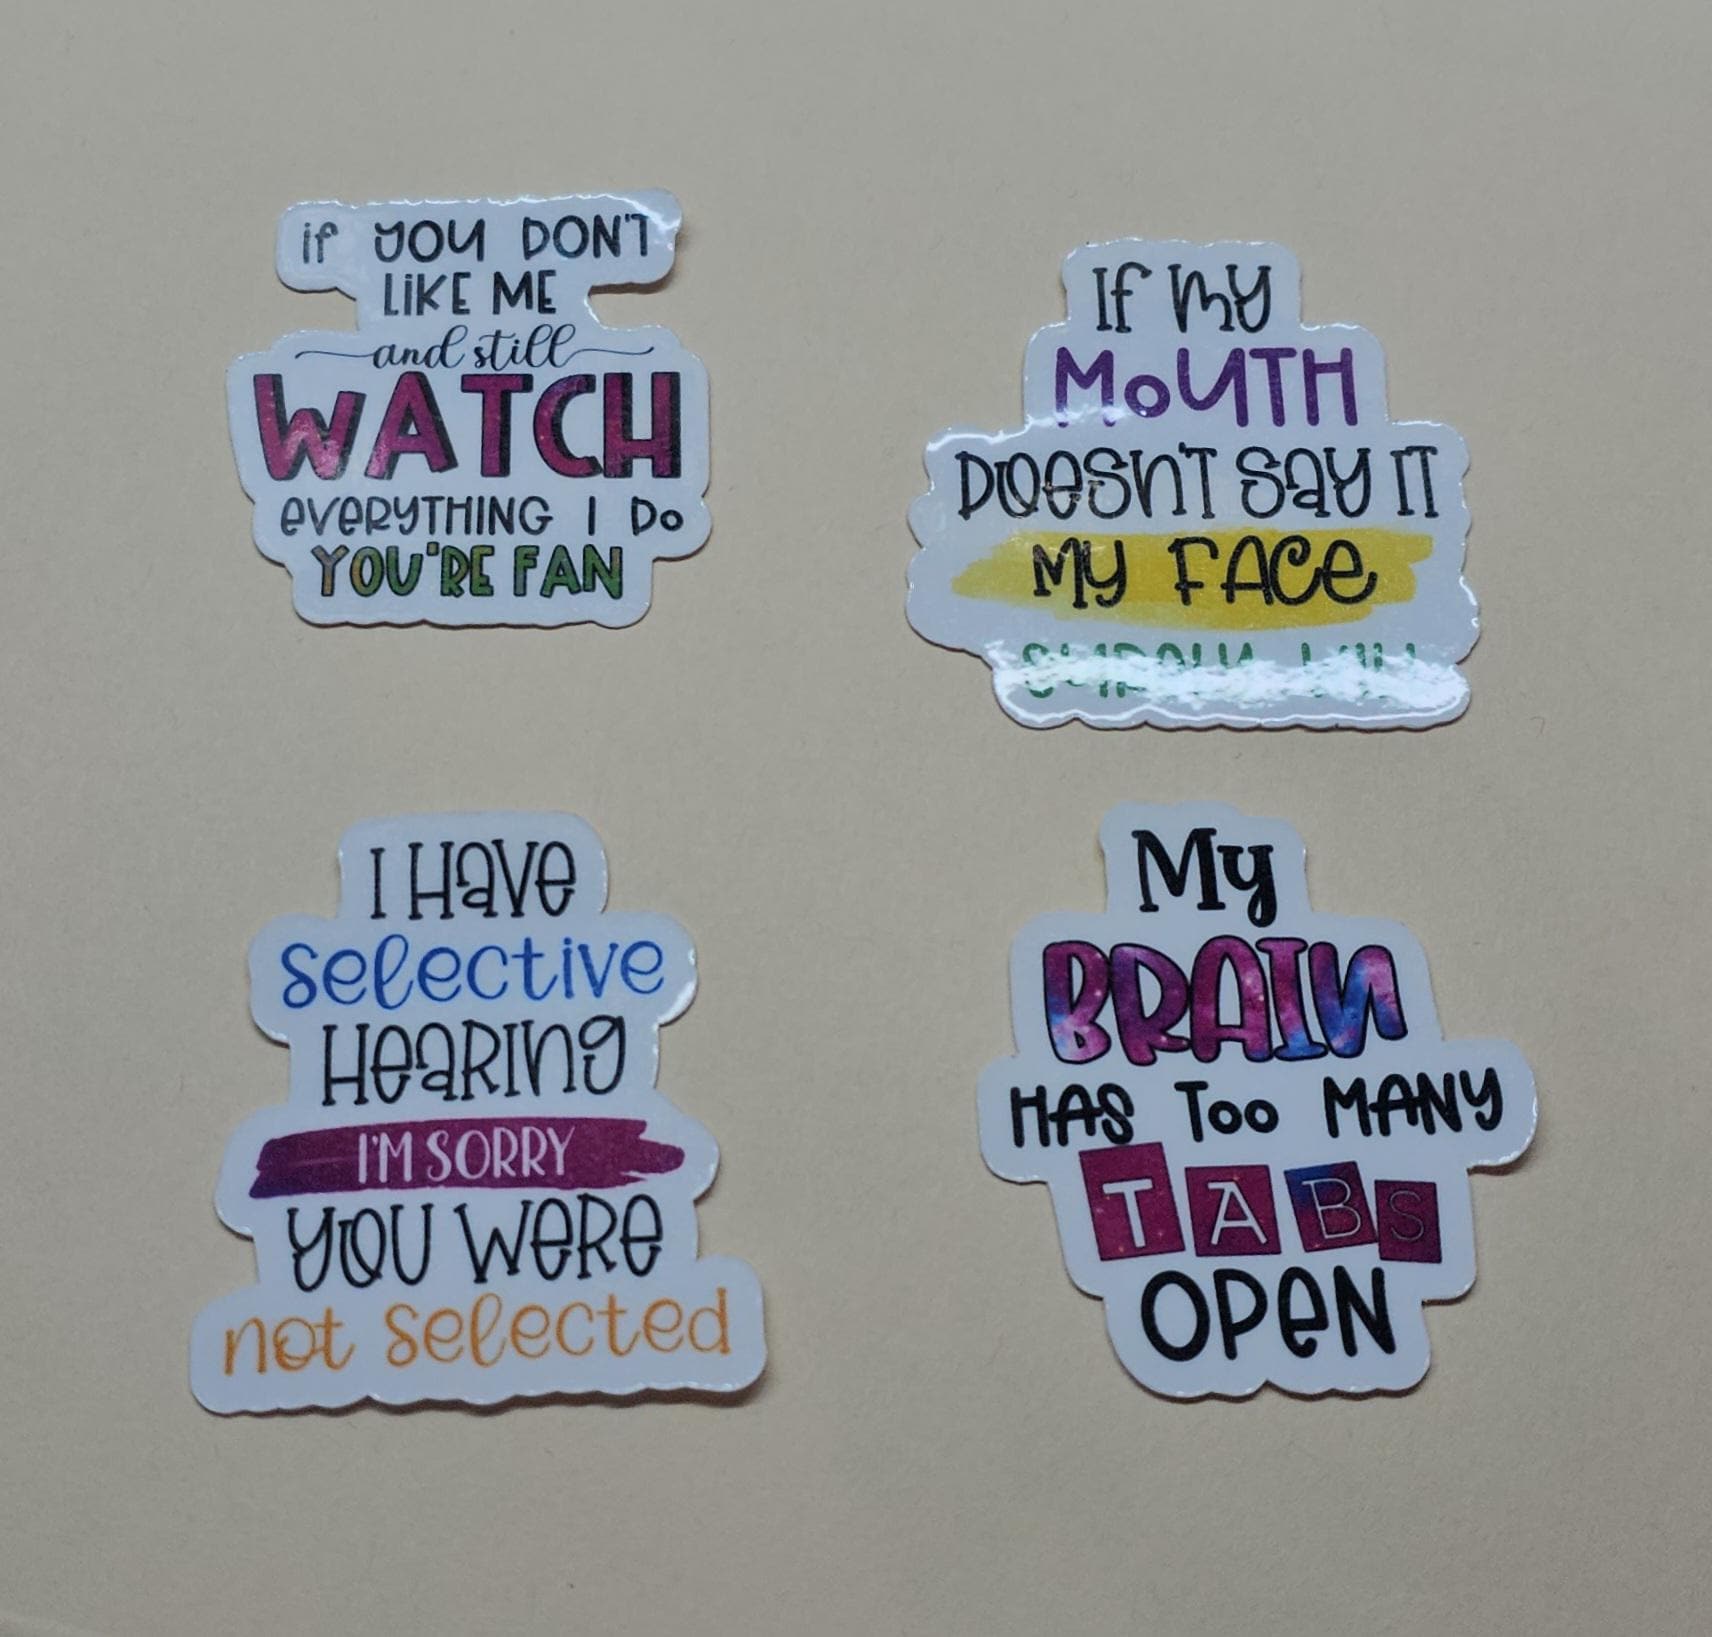 if you DON'T
LIKE ME
and still
WATCH
everything I Do
YOU'RE FAN
If my
MOUTH
Doesn't say it
My FACE
I Have
selective
Hearing
I'M SORRY
you were
not selected
My
BRAIN
HAS Too MANY
TABS
OPEN